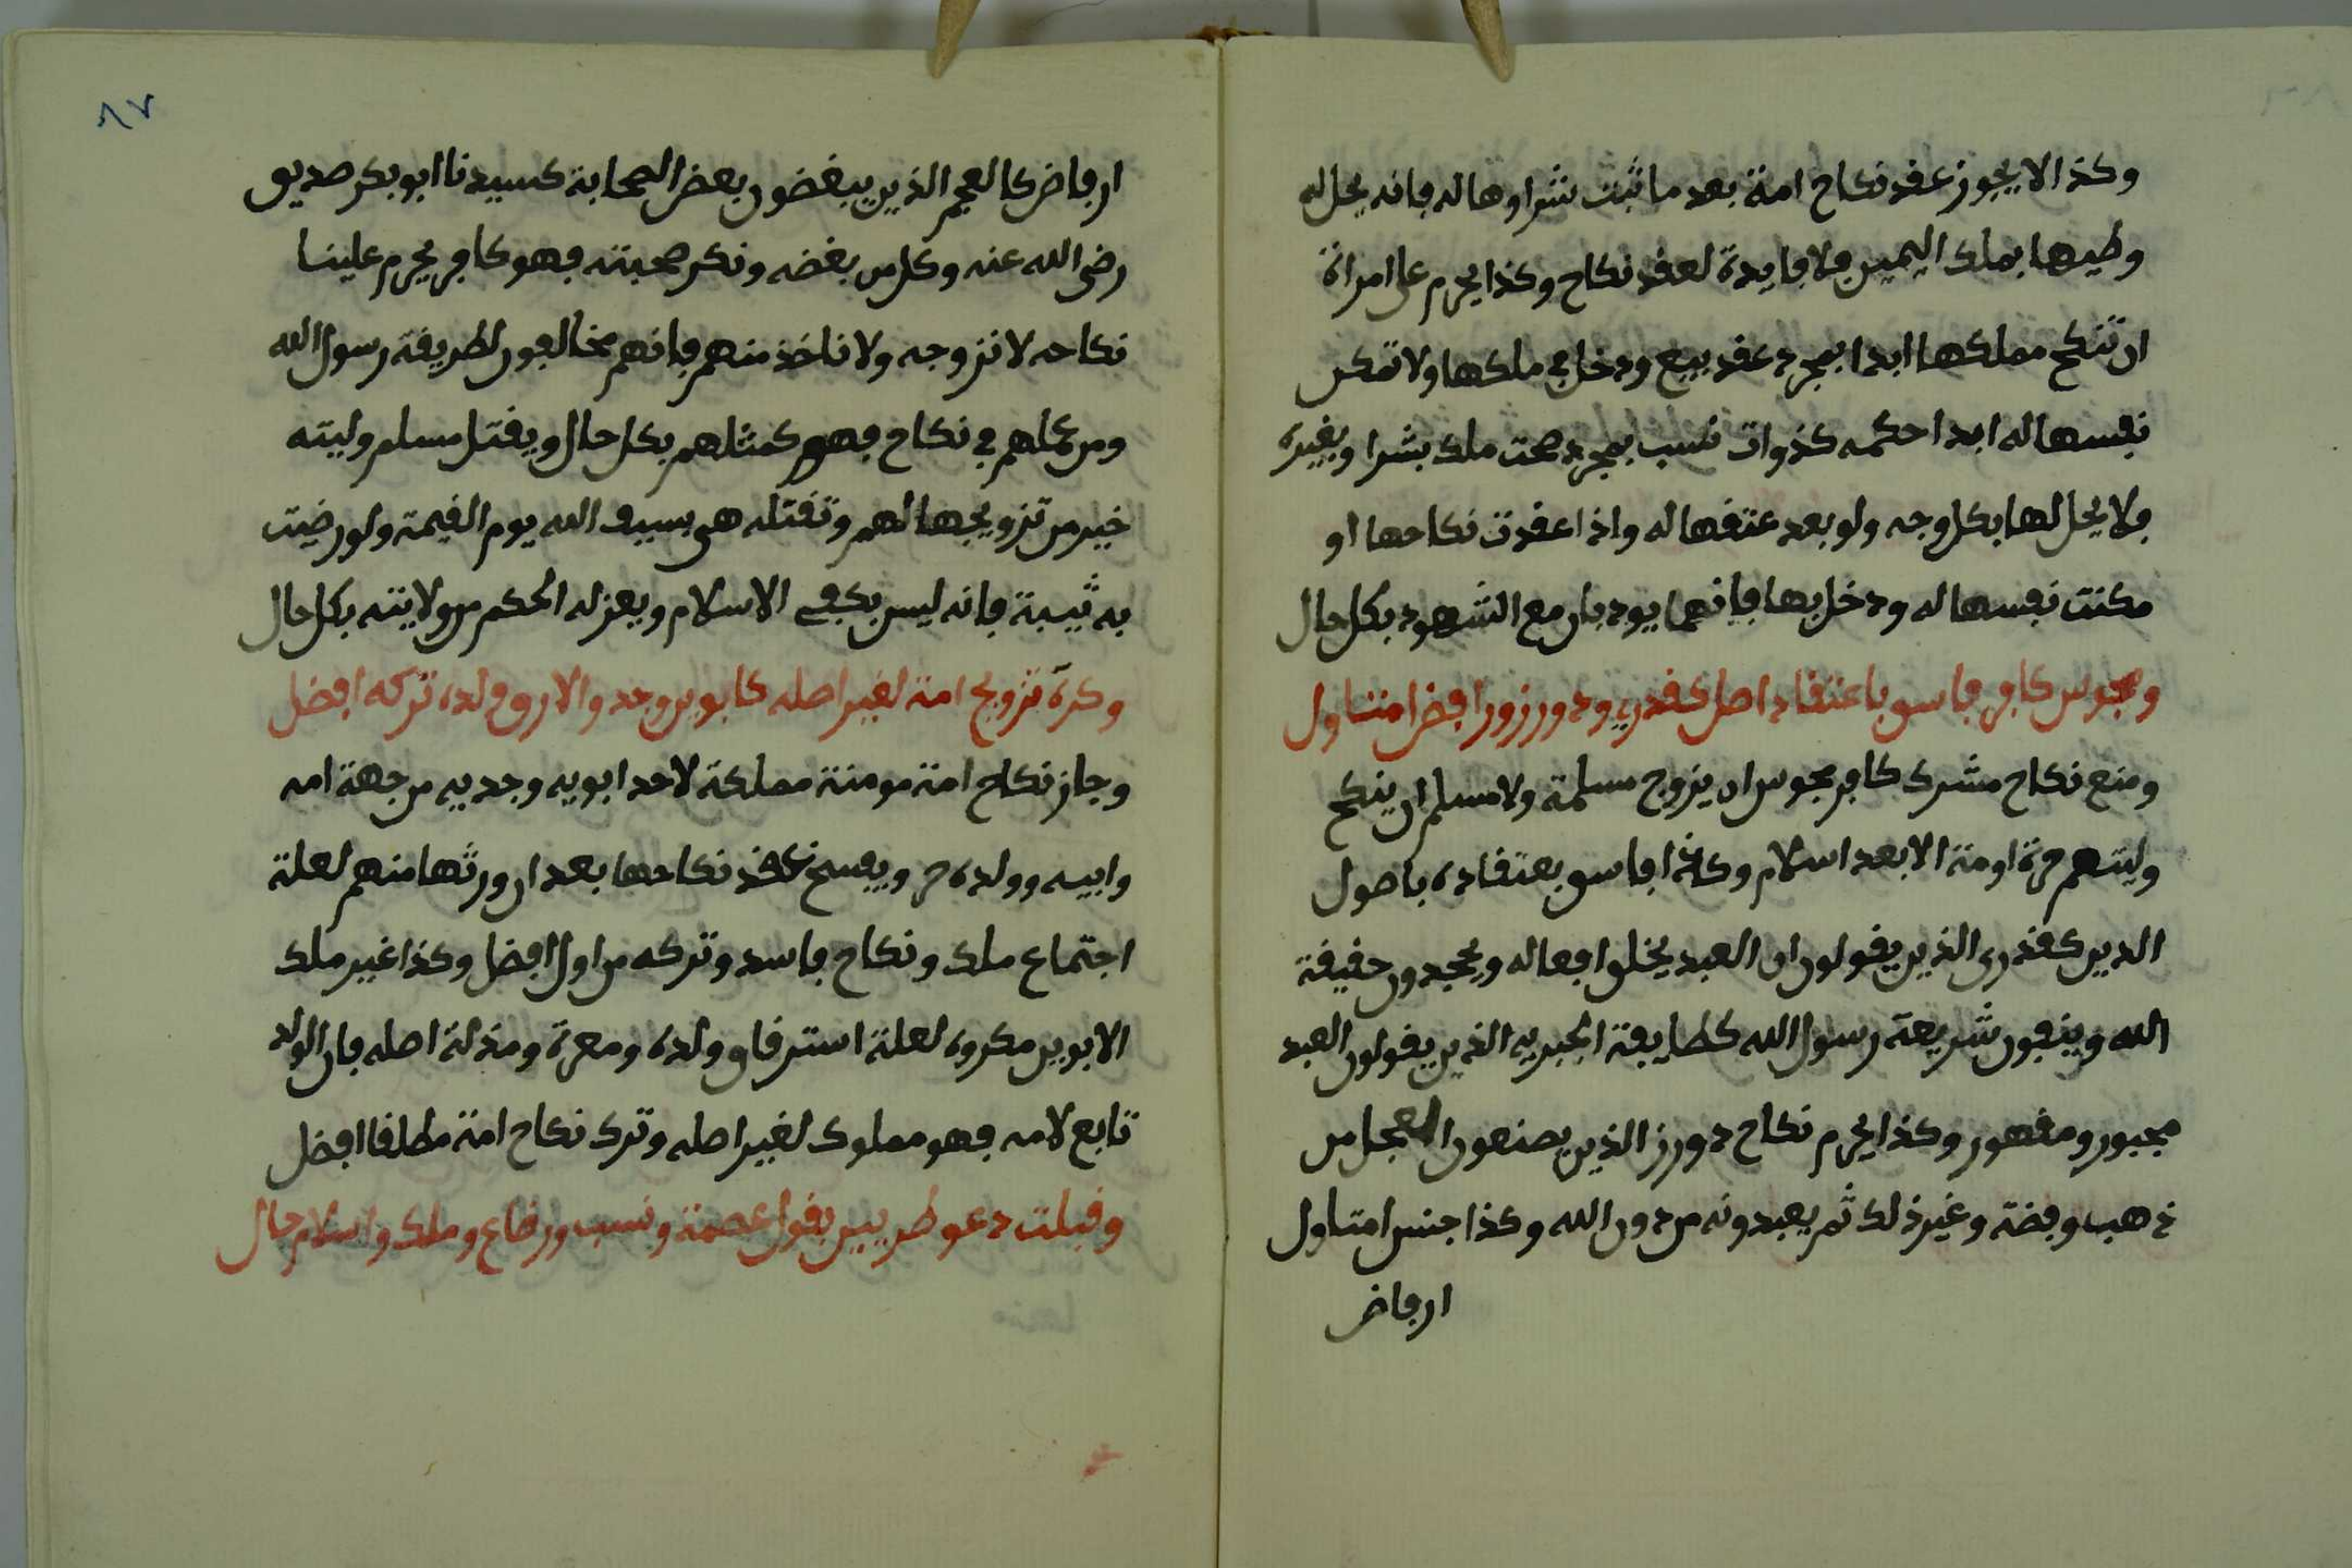 وكذا لا يجوز عقد نكاح امة بعد ما ثبت شراوها له فانه يحل له
وطيها بملك اليمين فلا فايدة لعقد نكاح وكذا يحرم على امراة
ان تنكح مملكها ابدا بمجرد عقد بيع ودخل في ملكها ولا تمكن
نفسها له ابدا حكمه كذوات نسب بمجرد صحت ملك بشرا وبغيره
فلا يحل لها بكل وجه ولو بعد عتقها له واذا عقدت نكاحها او
مكنت نفسها له ودخل بها فانهما يودبان مع الشهود بكل حال
ومجوس كافر فاسق باعتقاد اصل كقدري ودورز ورافض امتناول
ومنع نكاح مشرك كافر مجوس ان يزوج مسلمة ولا مسلم ان ينكح
وليتهم حرة او منة الا بعد اسلام وكذا فاسق بعتقاده باصول
الدين كقدرى الذين يقولون ان العبد يخلق افعاله ويجحدون حقيقة
الله وينفون شريعة رسول الله كطايفة الجبريه الذين يقولون العبد
مجبور ومقهور وكذا يحرم نكاح دورز الذين يصنعون العجل من
ذهب وفضة وغير ذلك ثم يعبدونه من دون الله وكذا جنس امتاول
ارفاض
٨٧
ارفاض كالعجم الذين يبغضون بعض الصحابة كسيدنا ابو بكر صديق
رضى الله عنه وكل من بغضه ونكر صحبته فهو كافر يحرم علينا
نكاحه لا نزوجه ولا ناخذ منهم فانهم مخالفون لطريقة رسول الله
ومن عملهم في نكاح فهو كمثلهم بكل حال ويقتل مسلم وليته
خير من تزويجها لهم وتقتله هى بسيف الله يوم القيمة ولو رضيت
به ثيبة فانه ليس بكفى الاسلام ويعزله الحكم من ولايته بكل حال
وكره تزويج امة لغير اصله كابوين وجد والارق ولده تركه افضل
وجاز نكاح امة مومنة مملكة لاحد ابويه وجديه من جهة امه
وابيه وولده حر ويفسخ عقد نكاحها بعد ان ورثها منهم لعلة
اجتماع ملك ونكاح فاسد وتركه من اول افضل وكذا غير ملك
الابوين مكروه لعلة استرقاق ولده ومعرة ومذلة اصله فان الولد
تابع لامه فهو مملوك لغير اصله وترك نكاح امة مطلقا افضل
وقبلت دعو طريين بقول عصمة ونسب ورضاع وملك واسلام حال